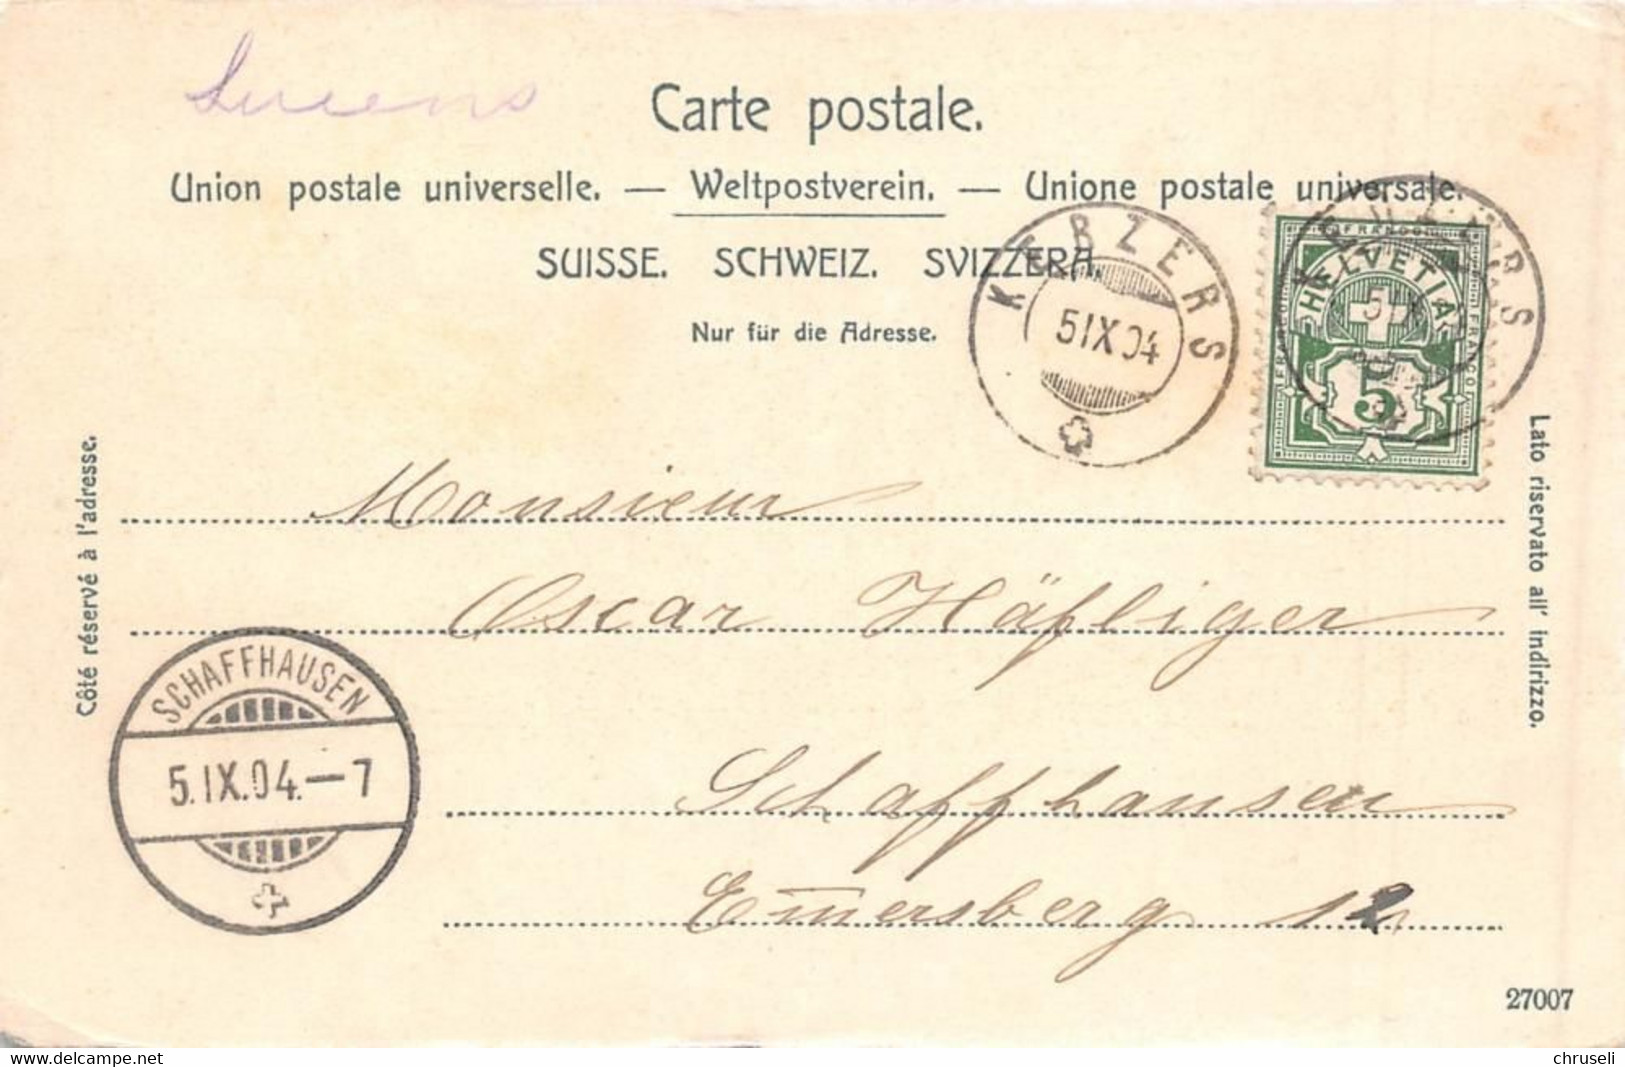 Lucens
Carte postale.
Union postale universelle. — Weltpostverein. — Unione postale universale.
SUISSE. SCHWEIZ. SVIZZERA.
Nur für die Adresse.
KERZERS
5 IX 04
KERZERS
5 IX
FRANCO
HELVETIA
FRANCO
FRANCO
5
Côté réservé à l'adresse.
Lato riservato all' indirizzo.
Monsieur
Oscar Häfliger
SCHAFFHAUSEN
5.IX.04.—7
Schaffhausen
Em̅ersberg 12
27007
chruseli